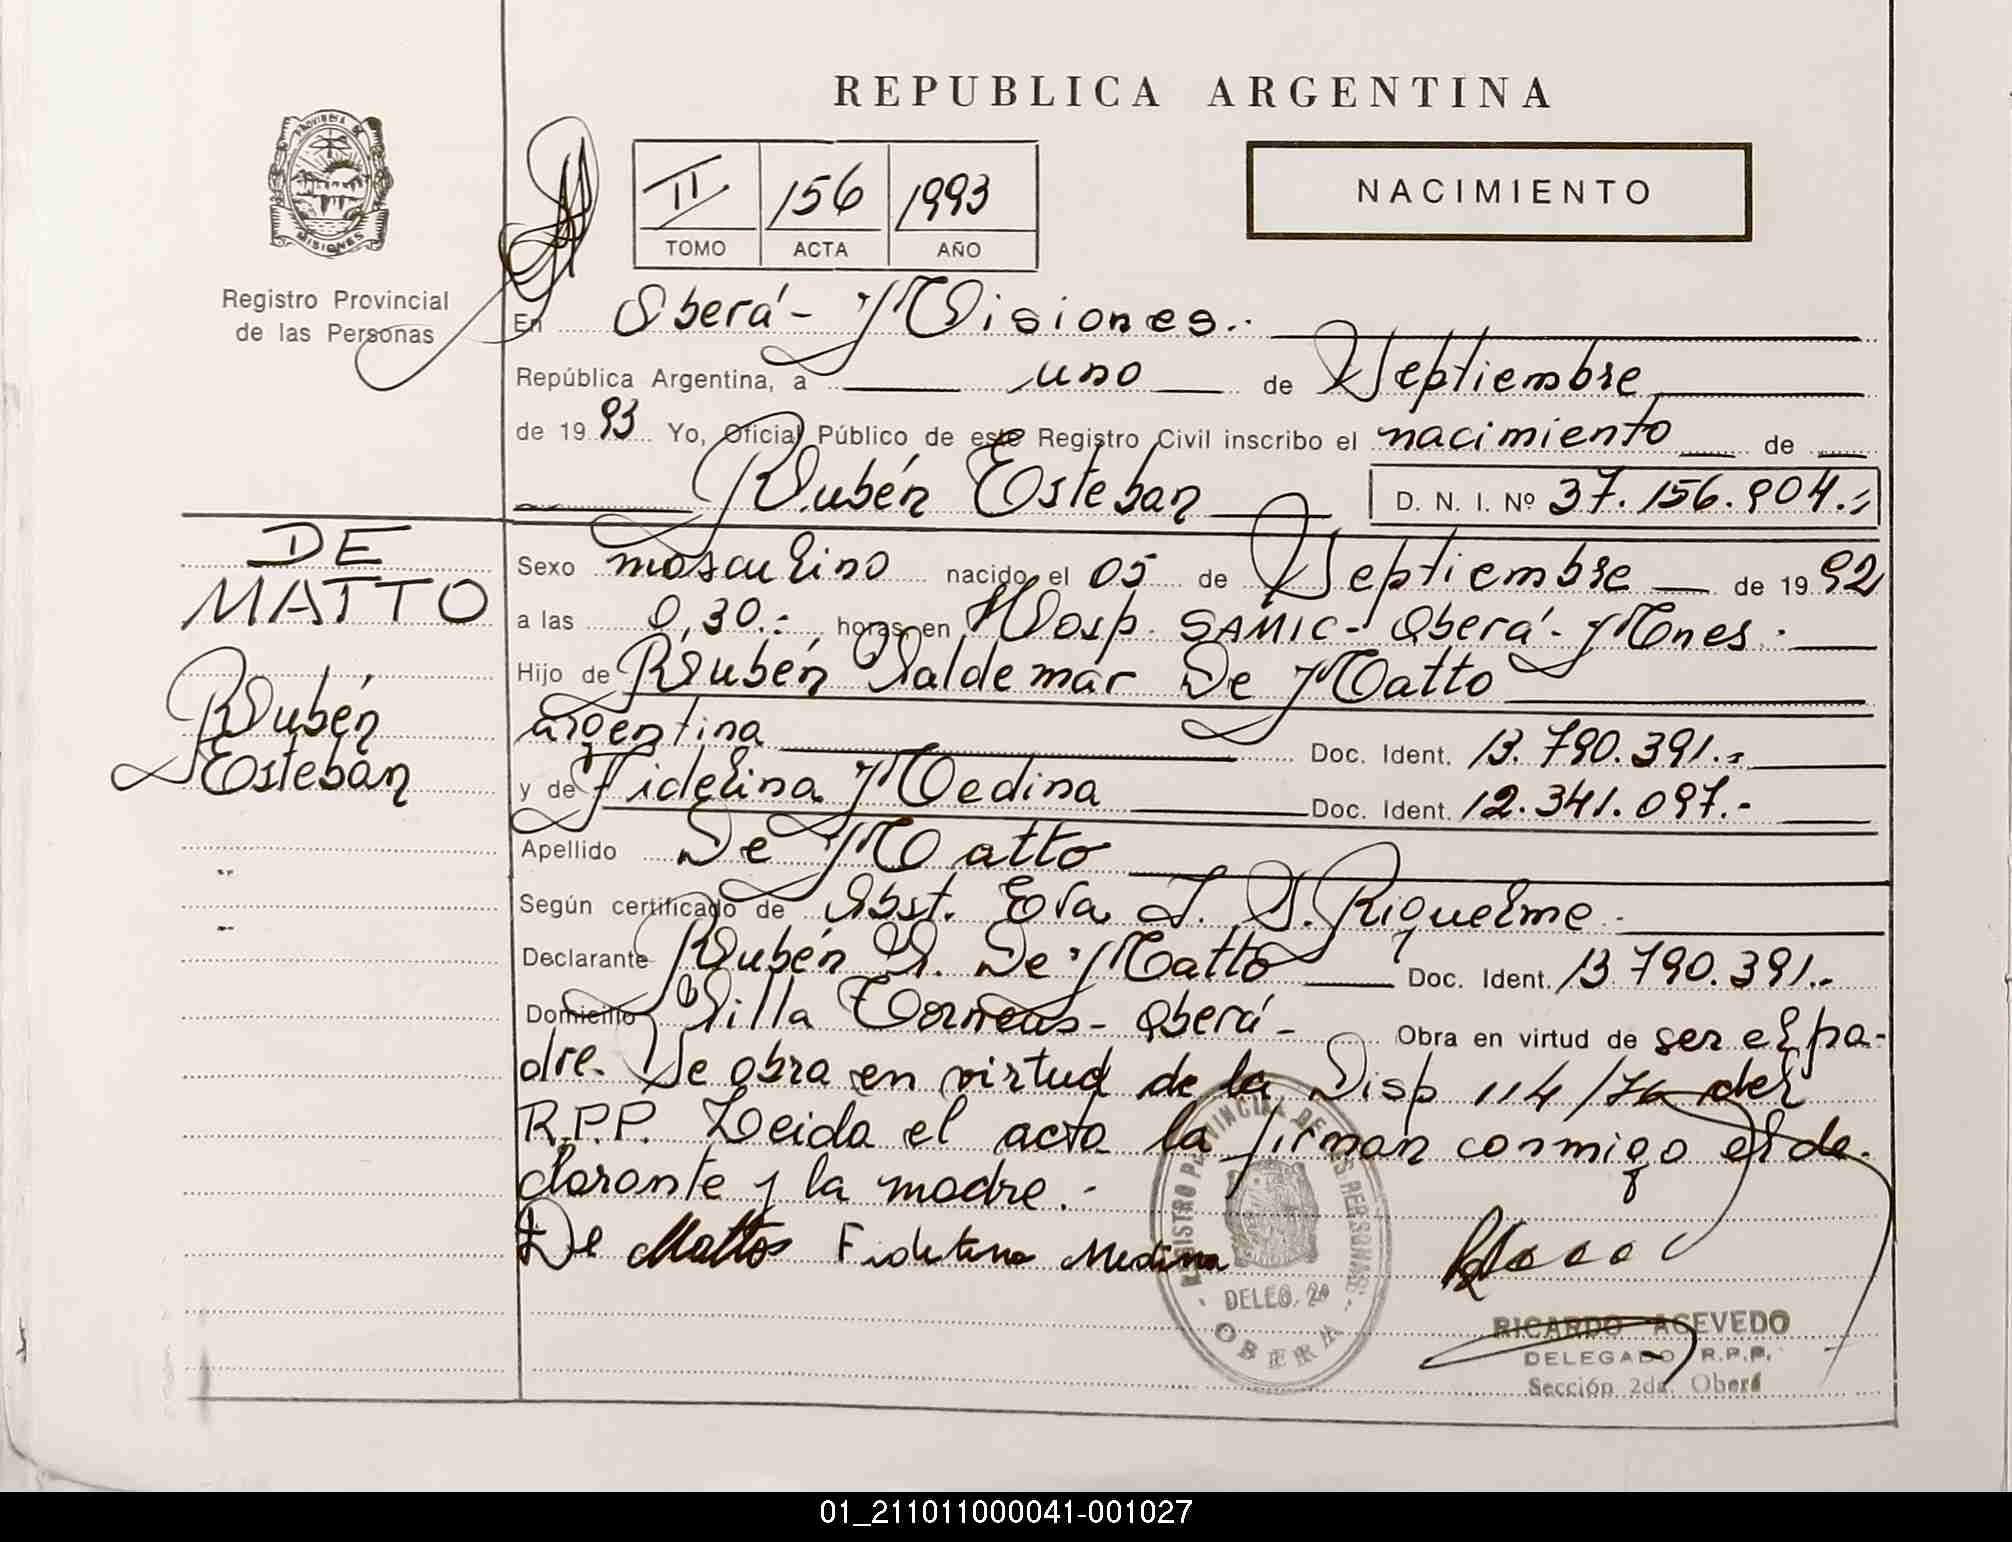 REPUBLICA ARGENTINA
PROVINCIA DE
MISIONES
Registro Provincial
de las Personas
II 156 1993
TOMO ACTA AÑO
NACIMIENTO
En Oberá - Misiones.-
República Argentina, a uno de Septiembre
de 1993 Yo, Oficial Público de este Registro Civil inscribo el nacimiento de
Rubén Esteban D. N. I. Nº 37.156.904.-
DE
MATTO
Rubén
Esteban
Sexo masculino nacido el 05 de Septiembre de 1992
a las 0,30.- horas en Hosp. SAMIC - Oberá - Mnes.
Hijo de Rubén Valdemar De Matto
argentina Doc. Ident. 13.790.391.-
y de Fidelina Medina Doc. Ident. 12.341.097.-
Apellido De Matto
Según certificado de Obst. Eva S. Riquelme.
Declarante Rubén V. De Matto Doc. Ident. 13.790.391.-
Domicilio Villa Oberá - Obra en virtud de ser el pa-
dre. Se obra en virtud de la Disp 114/76 del
R.P.P. Leida el acta la firman conmigo el de-
clarante y la madre.-
De Mattos Fidelina Medina
REGISTRO PROVINCIAL DE LAS PERSONAS
DELEG. 2a
OBERA
RICARDO ACEVEDO
DELEGADO R.P.P.
Sección 2da. Oberá
01_211011000041-001027